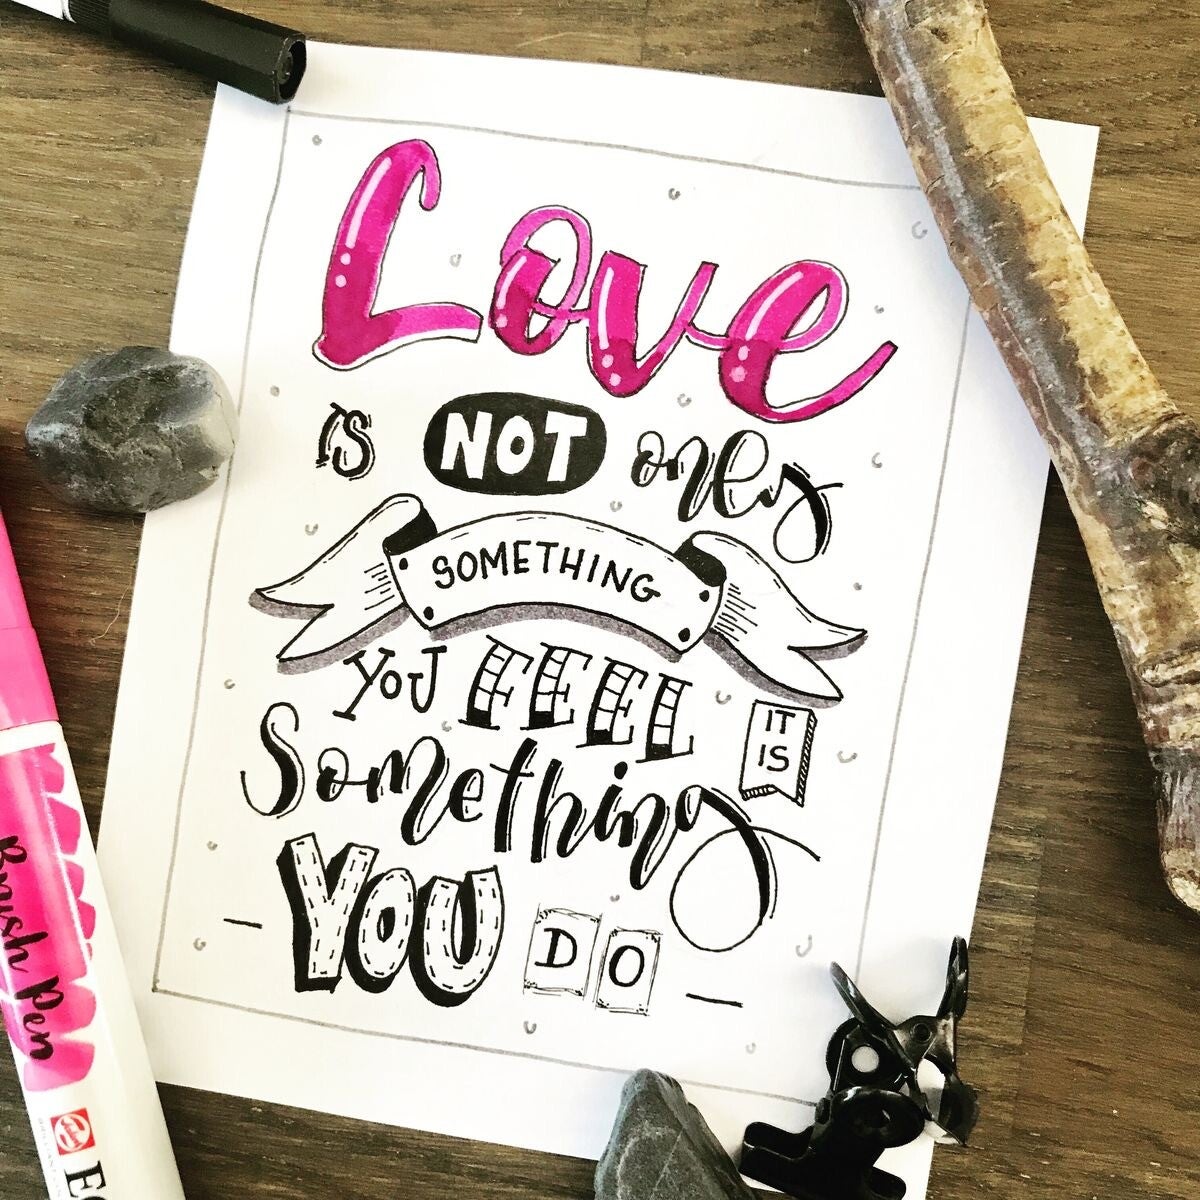 Love
is NOT only
SOMETHING
YOU FEEL IT IS
Something
YOU DO
Brush Pen